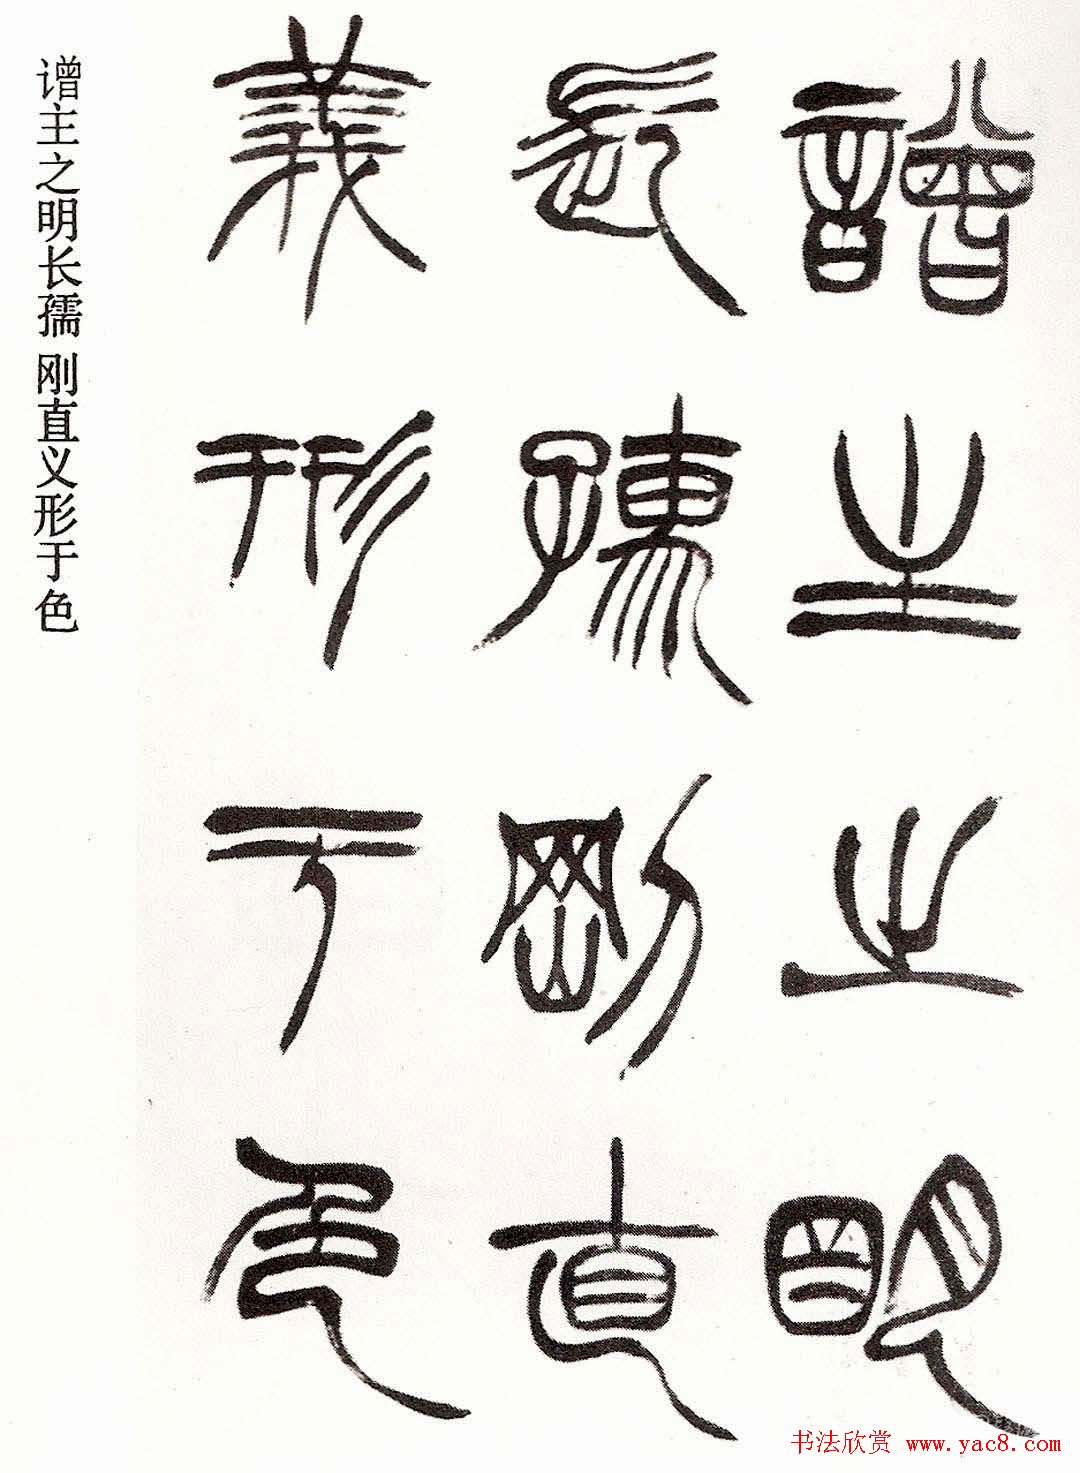 譄主之明
長孺剛直
義形于色
主之明长孺 刚直义形于色
书法欣赏 www.yac8.com